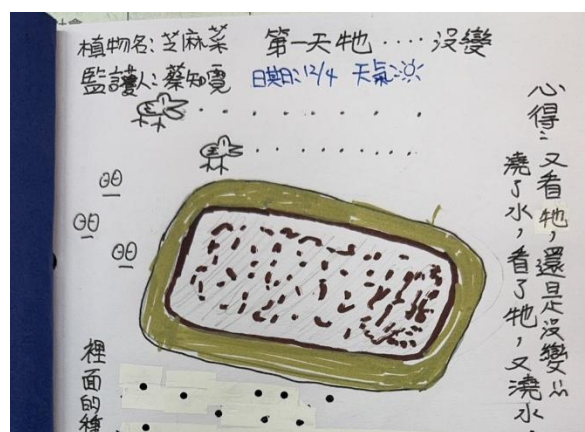 植物名:芝麻菜
第一天牠‥‥沒變
監護人:蔡知霓
日期:12/4 天氣:
心得:又看牠,還是沒變
澆了水,看了牠,又澆水
裡面的種